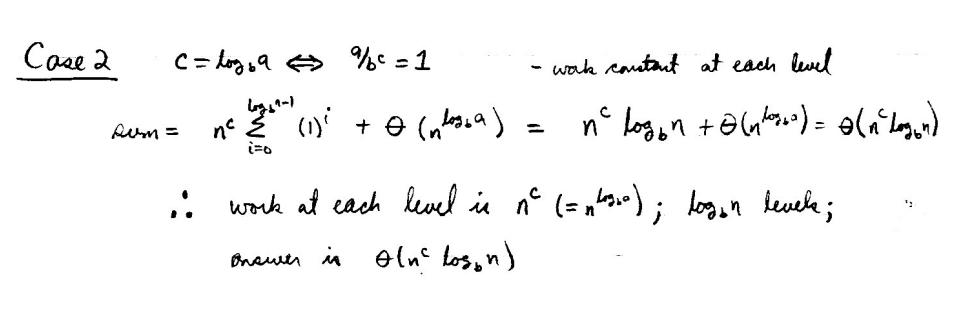 Case 2 c = log_b a ⇔ a/b^c = 1 - work constant at each level
sum = n^c Σ_{i=0}^{log_b n-1} (1)^i + Θ(n^{log_b a}) = n^c log_b n + Θ(n^{log_b a}) = Θ(n^c log_b n)
∴ work at each level is n^c (= n^{log_b a}); log_b n levels;
answer is Θ(n^c log_b n)